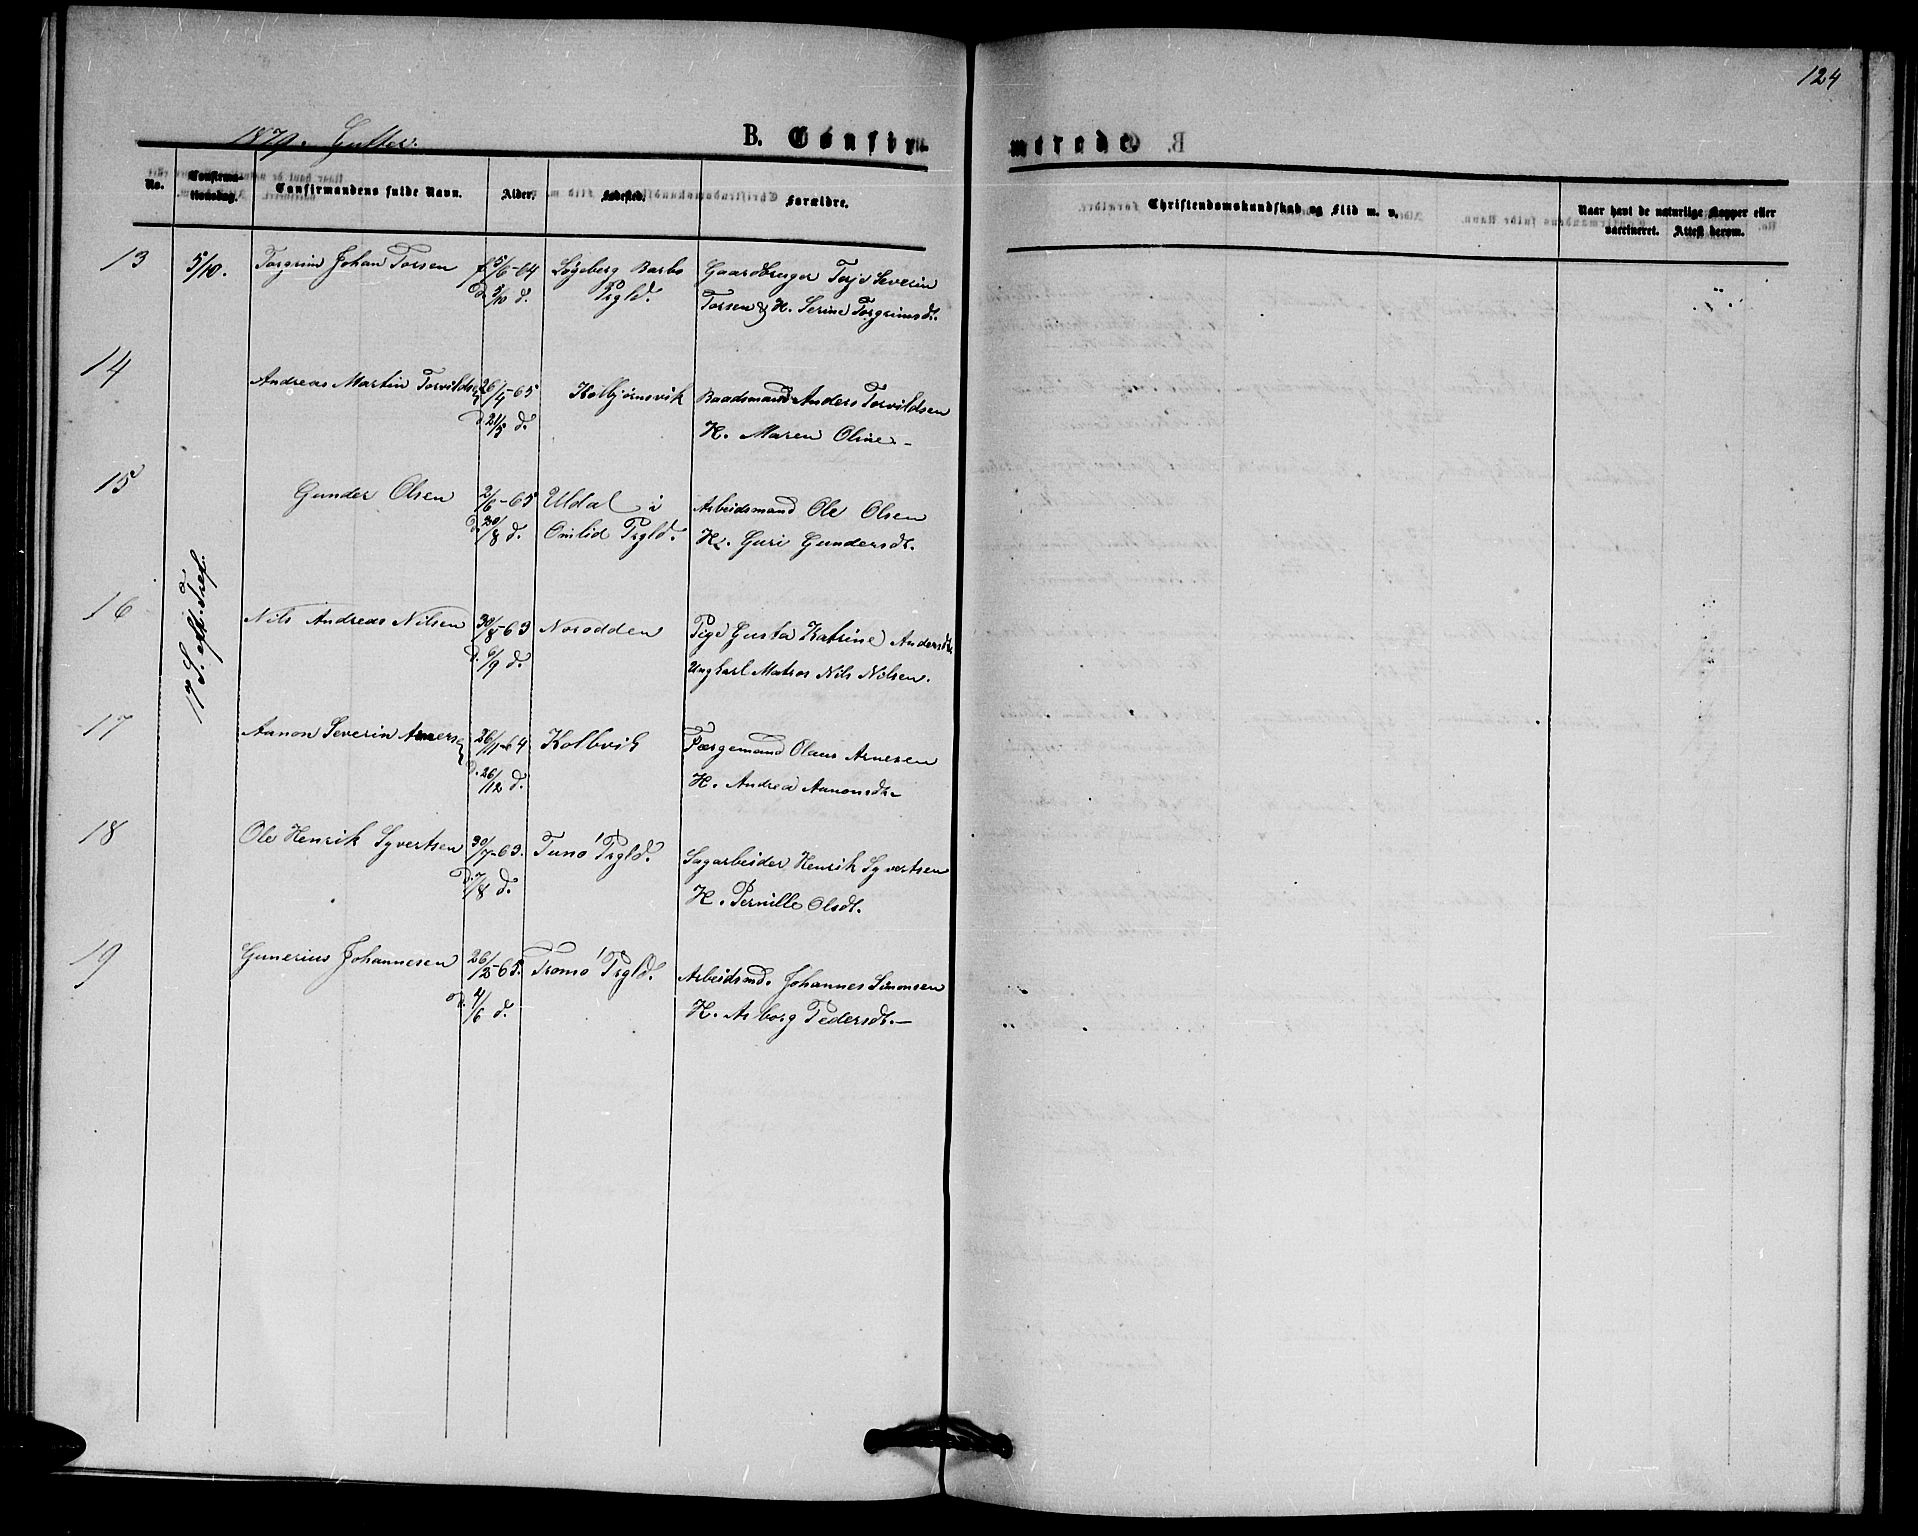 124
1879. Gutter.
B. Confir
merede
No.
Confirma-
tionsdag.
Confirmandens fulde Navn.
Alder.
Fødested.
Forældre.
Christendomskundskab og Flid m. v.
Naar havt de naturlige Kopper eller
vaccineret. Attest derom.
13 5/10. Torgrim Johan Torsen f. 5/6-64 Løgeberg Barbo Gaardbruger Terje Severin
d. 5/10 d. Prgld. Torsen & H. Serine Torgrimsdt.
17 S. eft. Tref.
14 Andreas Martin Torvildsen 26/4-65 Kolbjørnsvik Baadsmand Anders Torvildsen
d. 21/5 d. H. Maren Oline -
15 Gunder Olsen 2/6-65 Uldal i Arbeidsmand Ole Olsen
d. 20/8 d. Omlid Prgld. H. Guri Gundersdt.
16 Nils Andreas Nilsen 30/8-63 Norodden Pige Gusta Katrine Andersdt.
d. 6/9 d. Ungkarl Matros Nils Nilsen.
17 Aanon Severin Arnesen 26/11-64 Kolbvik Færgemand Olaus Arnesen
d. 26/12 d. H. Andrea Aanonsdt. -
18 Ole Henrik Syvertsen 30/7-63. Tuno Prgld. Sagarbeider Henrik Syvertsen
d. 7/8 d. H. Pernille Olsdt.
19 Gunerius Johannesen 26/2-65. Tromø Prgld. Arbeidsmd. Johannes Simonsen
d. 4/6 d. H. Asborg Pedersdt. -